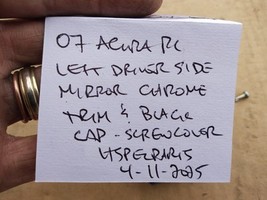 07 ACURA RL
LEFT DRIVER SIDE
MIRROR CHROME
TRIM & BLACK
CAP - SCREWCOVER
HSPEERARTS
4-11-2025